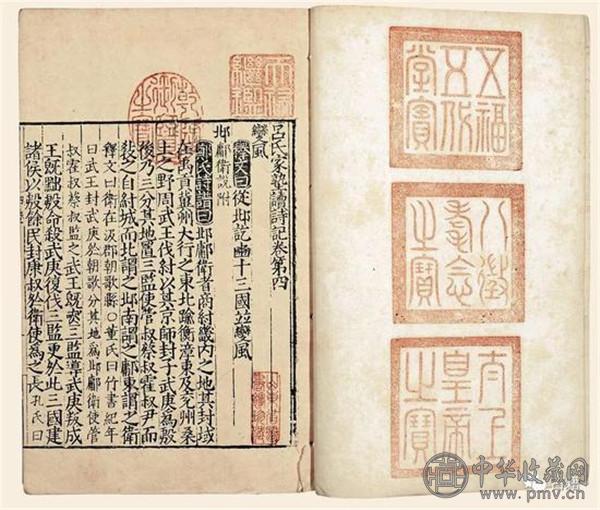 五福五代堂寶
八徵耄念之寶
太上皇帝之寶
天祿繼鑑
乾隆御覽之寶
呂氏家塾讀詩記卷第四
變風
釋文曰從邶訖豳十三國並變風
邶鄘衛說附
鄭氏詩譜曰邶鄘衛者商紂畿内之地其封域
在禹貢冀州大行之東北踰衡漳東及兗州桑
土之野周武王伐紂以其京師封子武庚為殷
後乃三分其地置三監使管叔蔡叔霍叔尹而
敎之自紂城而北謂之邶南謂之鄘東謂之衛
釋文曰衛在汲郡朝歌縣○董氏曰竹書紀年
曰武王封武庚於朝歌分其地為邶鄘衛使管
叔霍叔蔡叔監之武王旣喪三監導武庚叛成
王旣黜殷命殺武庚復伐三監更於此三國建
諸侯以殷餘民封康叔於衛使為之長孔氏曰
中华收藏网
www.pmv.cn